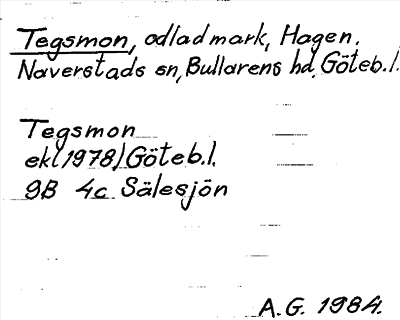 Tegsmon, odlad mark, Hagen.
Naverstads sn, Bullarens hd, Göteb.l.
Tegsmon
ekl(1978) Göteb.l.
9B 4c Sälesjön
A.G. 1984.